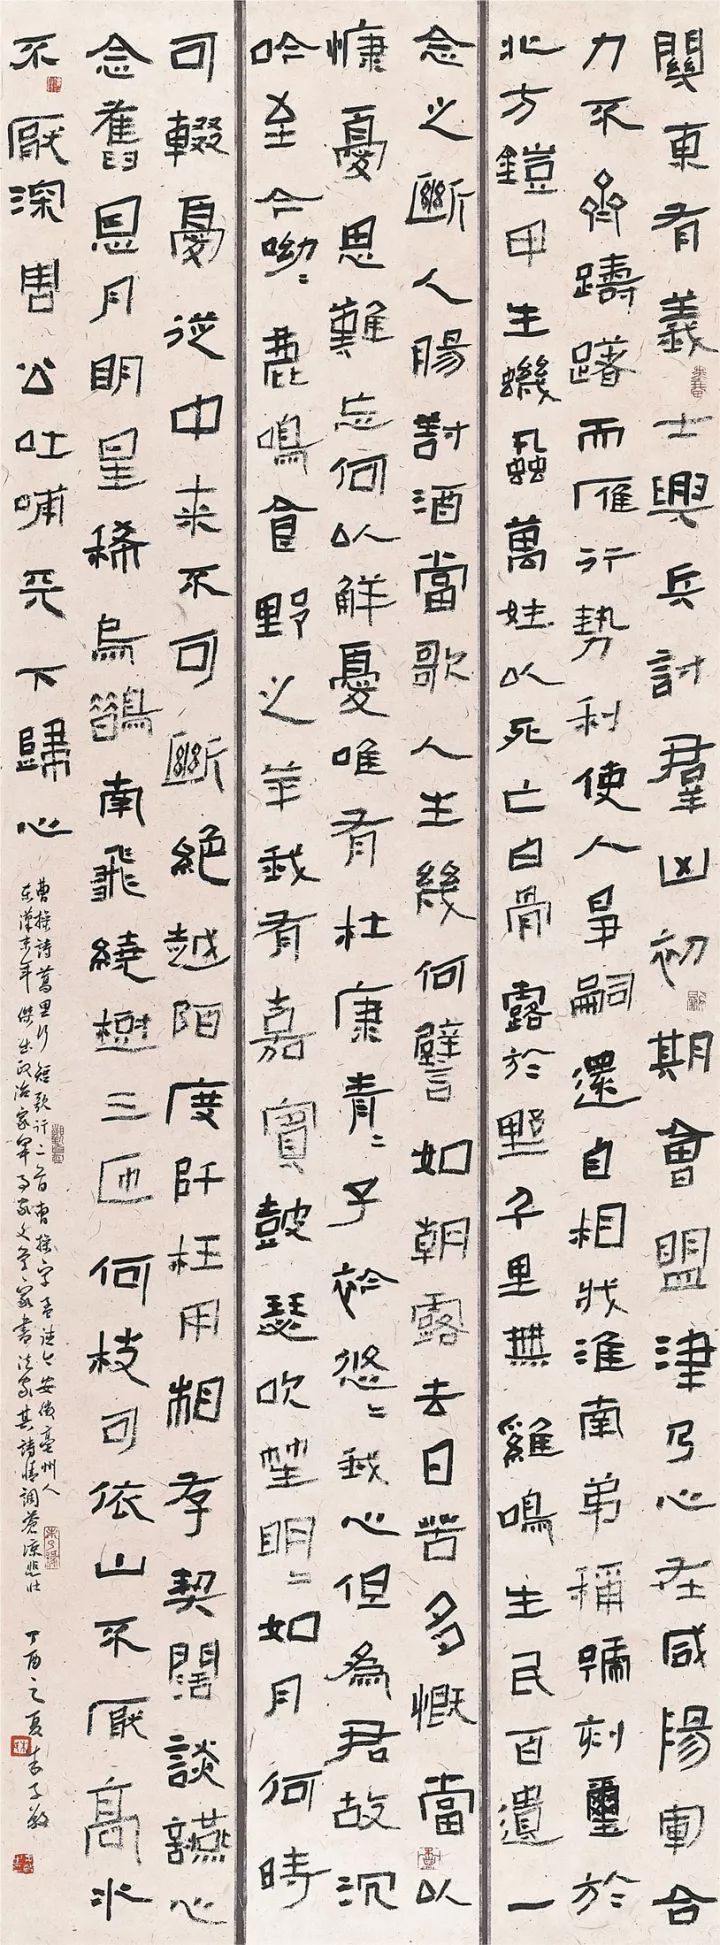 關東有義士興兵討羣凶初期會盟津乃心在咸陽軍合
力不齊躊躇而雁行勢利使人爭嗣還自相戕淮南弟稱號刻璽於
北方鎧甲生蟣蝨萬姓以死亡白骨露於野千里無雞鳴生民百遺一
念之斷人腸對酒當歌人生幾何譬如朝露去日苦多慨當以
慷憂思難忘何以解憂唯有杜康青〻子衿悠〻我心但為君故沉
吟至今呦〻鹿鳴食野之苹我有嘉賓鼓瑟吹笙明〻如月何時
可輟憂從中來不可斷絕越陌度阡枉用相存契闊談讌心
念舊恩月明星稀烏鵲南飛繞樹三匝何枝可依山不厭高水
不厭深周公吐哺天下歸心
曹操詩蒿里行短歌行二首曹操字孟德今安徽亳州人
東漢末年傑出政治家軍事家文學家書法家其詩情調蒼涼悲壯
丁酉之夏